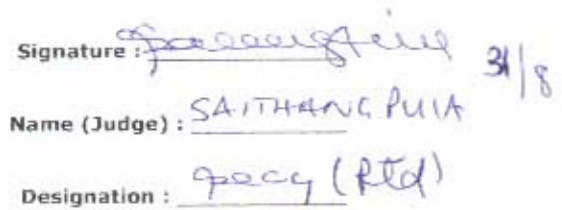 Signature : 31/8
Name (Judge) : SAITHANGPUIA
Designation : (Rtd)